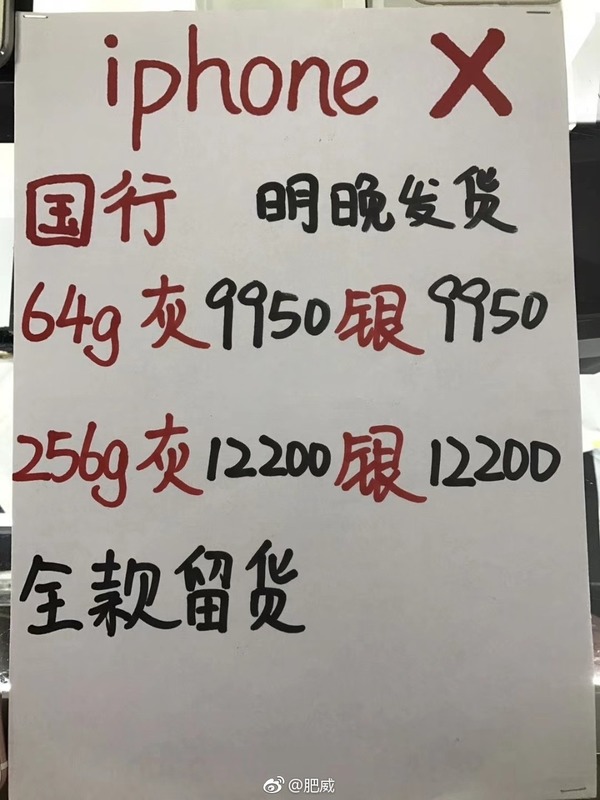 iphone X
国行 明晚发货
64g 灰 9950 银 9950
256g 灰 12200 银 12200
全款留货
@肥威